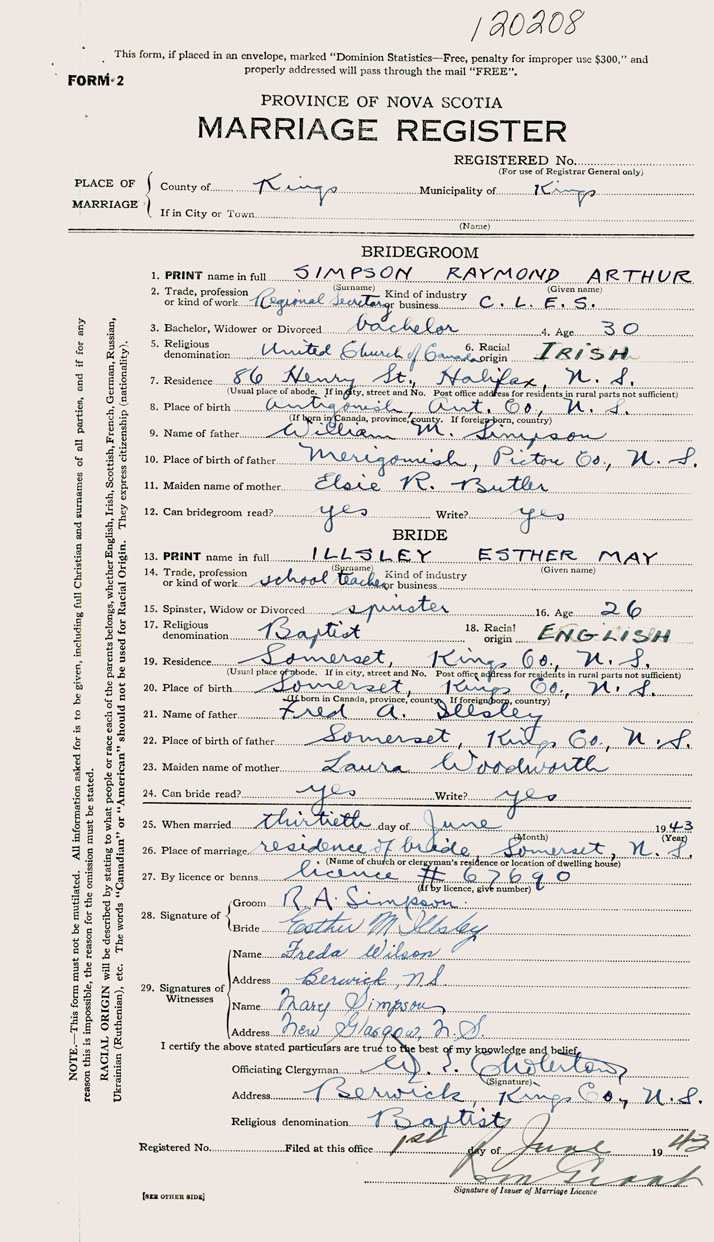 120208
This form, if placed in an envelope, marked "Dominion Statistics—Free, penalty for improper use $300," and
properly addressed will pass through the mail "FREE".
FORM 2
PROVINCE OF NOVA SCOTIA
MARRIAGE REGISTER
REGISTERED No.
(For use of Registrar General only)
PLACE OF MARRIAGE
County of Kings Municipality of Kings
If in City or Town
(Name)
BRIDEGROOM
1. PRINT name in full SIMPSON RAYMOND ARTHUR
(Surname) (Given name)
2. Trade, profession or kind of work Regional Secretary Kind of industry or business C. L. E. S.
3. Bachelor, Widower or Divorced bachelor 4. Age 30
5. Religious denomination United Church of Canada 6. Racial origin IRISH
7. Residence 86 Henry St., Halifax, N. S.
(Usual place of abode. If in city, street and No. Post office address for residents in rural parts not sufficient)
8. Place of birth Antigonish, Ant. Co., N. S.
(If born in Canada, province, county. If foreign born, country)
9. Name of father William M. Simpson
10. Place of birth of father Merigomish, Pictou Co., N. S.
11. Maiden name of mother Elsie R. Butler
12. Can bridegroom read? yes Write? yes
BRIDE
13. PRINT name in full ILLSLEY ESTHER MAY
(Surname) (Given name)
14. Trade, profession or kind of work school teacher Kind of industry or business
15. Spinster, Widow or Divorced spinster 16. Age 26
17. Religious denomination Baptist 18. Racial origin ENGLISH
19. Residence Somerset, Kings Co., N. S.
(Usual place of abode. If in city, street and No. Post office address for residents in rural parts not sufficient)
20. Place of birth Somerset, Kings Co., N. S.
(If born in Canada, province, county. If foreign born, country)
21. Name of father Fred A. Illsley
22. Place of birth of father Somerset, Kings Co., N. S.
23. Maiden name of mother Laura Woodworth
24. Can bride read? yes Write? yes
25. When married thirtieth day of June 1943
(Month) (Year)
26. Place of marriage residence of bride, Somerset, N. S.
(Name of church or clergyman's residence or location of dwelling house)
27. By licence or banns licence # 67690
(If by licence, give number)
28. Signature of
Groom R. A. Simpson
Bride Esther M Illsley
29. Signatures of Witnesses
Name Freda Wilson
Address Berwick, NS
Name Mary Simpson
Address New Glasgow, N. S.
I certify the above stated particulars are true to the best of my knowledge and belief.
Officiating Clergyman
(Signature)
Address Berwick, Kings Co., N. S.
Religious denomination Baptist
Registered No. Filed at this office 1st day of June 1943
Signature of Issuer of Marriage Licence
[SEE OTHER SIDE]
NOTE.—This form must not be mutilated. All information asked for is to be given, including full Christian and surnames of all parties, and if for any
reason this is impossible, the reason for the omission must be stated.
RACIAL ORIGIN will be described by stating to what people or race each of the parents belongs, whether English, Irish, Scottish, French, German, Russian,
Ukrainian (Ruthenian), etc. The words "Canadian" or "American" should not be used for Racial Origin. They express citizenship (nationality).